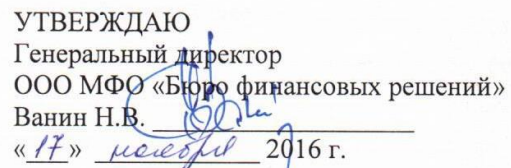 УТВЕРЖДАЮ
Генеральный директор
ООО МФО «Бюро финансовых решений»
Ванин Н.В. ____________________
«17» ноября 2016 г.